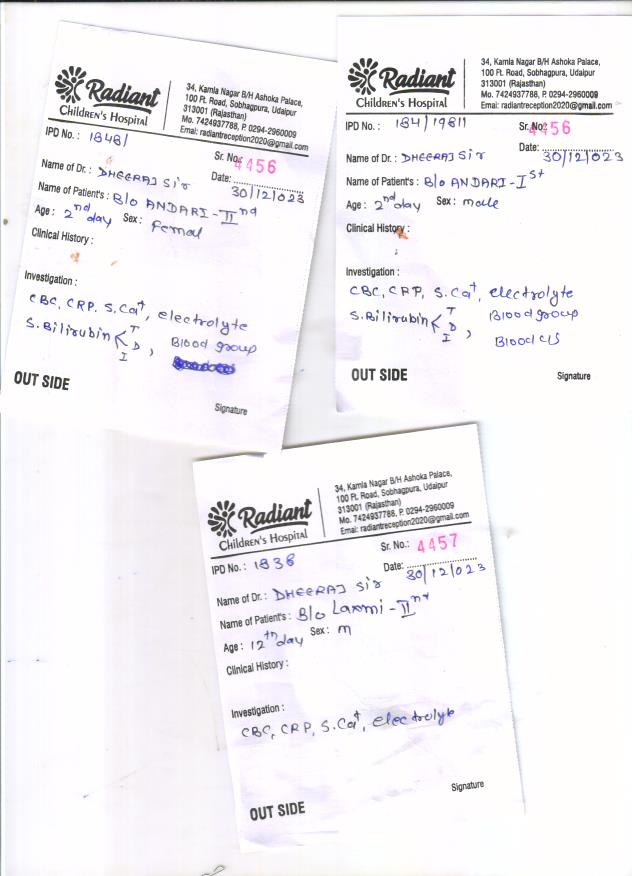 Radiant
Children's Hospital
34, Kamla Nagar B/H Ashoka Palace,
100 Ft. Road, Sobhagpura, Udaipur
313001 (Rajasthan)
Mo. 7424937788, P. 0294-2960009
Emai: radiantreception2020@gmail.com
IPD No. : 1848/
Sr. No.: 4456
Name of Dr. : DHEERAJ Sir
Date: 30/12/023
Name of Patient's : B/o ANDARI - II nd
Age : 2nd day Sex: Femal
Clinical History :
Investigation :
CBC, CRP, S. Ca+, electrolyte
S. Bilirubin < T D I , Blood group
OUT SIDE
Signature
Radiant
Children's Hospital
34, Kamla Nagar B/H Ashoka Palace,
100 Ft. Road, Sobhagpura, Udaipur
313001 (Rajasthan)
Mo. 7424937788, P. 0294-2960009
Emai: radiantreception2020@gmail.com
IPD No. : 184/19811
Sr. No.: 4456
Date: 30/12/023
Name of Dr. : DHEERAJ Sir
Name of Patient's : B/o ANDARI - I st
Age : 2nd day Sex: male
Clinical History :
Investigation :
CBC, CRP, S. Ca+, electrolyte
S. Bilirubin < T D I , Blood group
Blood c/s
OUT SIDE
Signature
Radiant
Children's Hospital
34, Kamla Nagar B/H Ashoka Palace,
100 Ft. Road, Sobhagpura, Udaipur
313001 (Rajasthan)
Mo. 7424937788, P. 0294-2960009
Emai: radiantreception2020@gmail.com
IPD No. : 1836
Sr. No.: 4457
Date: 30/12/023
Name of Dr. : DHEERAJ Sir
Name of Patient's : B/o Laxmi - II nd
Age : 12th day Sex: M
Clinical History :
Investigation :
CBC, CRP, S. Ca+, electrolyte
Signature
OUT SIDE